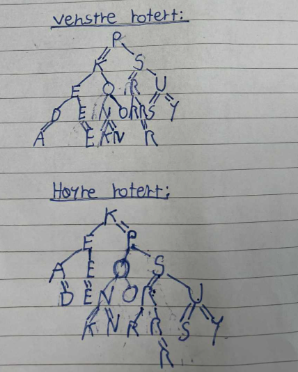 venstre rotert:
P
K S
E O R U
D E N O R R S Y
A E K N R
Høyre rotert:
K
E P
A E O S
D E N O R U
K N R R S Y
R